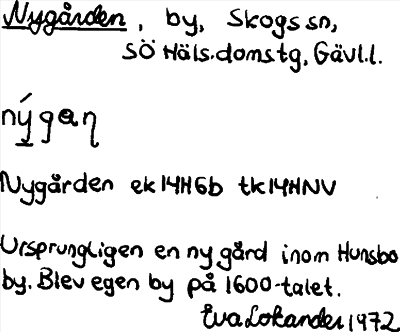 Nygården, by, Skogs sn,
SÖ Häls. domstg, Gävl.l.
nýgaɳ
Nygården ek 14H6b tk 14HNV
Ursprungligen en ny gård inom Hunsbo
by. Blev egen by på 1600-talet.
Eva Lokander 1972